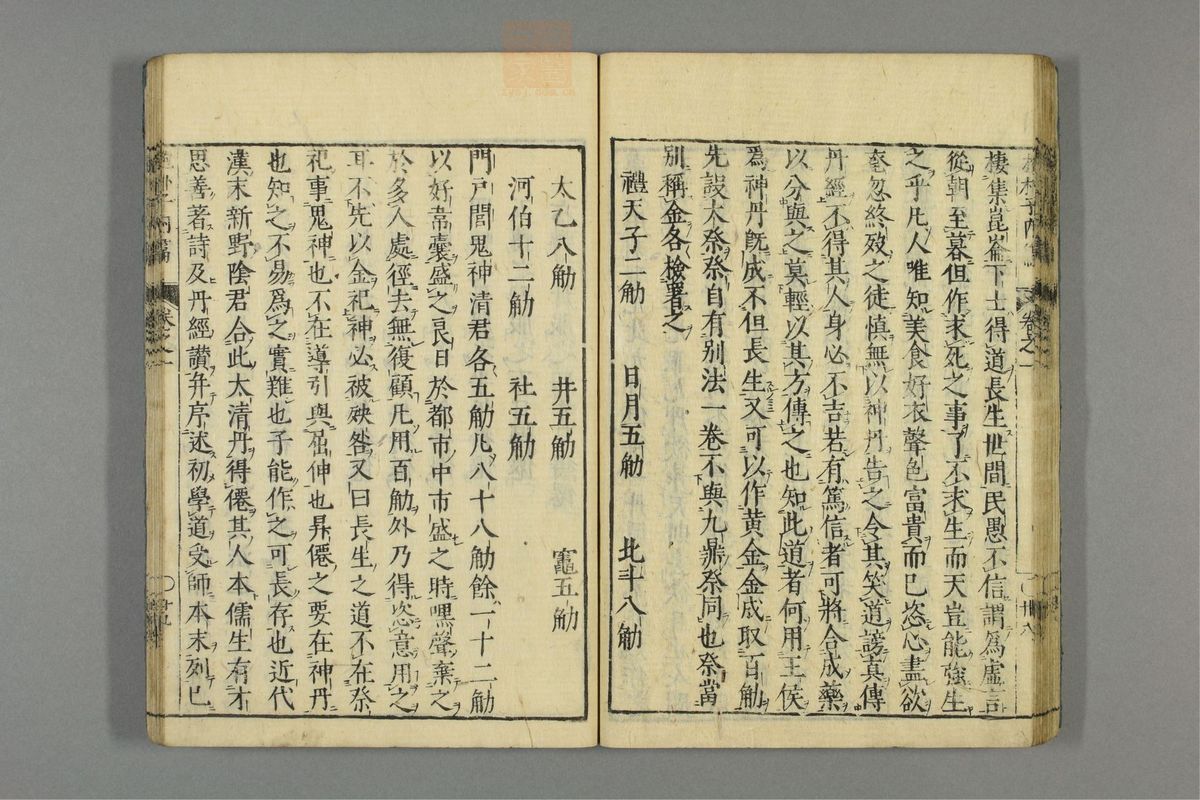 棲集崑崙下士得道長生世間民愚不信謂爲虛言
從朝至暮但作求死之事了不求生而天豈能強生
之乎凡人唯知美食好衣聲色富貴而已恣心盡欲
奄忽終歿之徒慎無以神丹告之令其笑道謗真傳
丹經不得其人身必不吉若有篤信者可將合成藥
以分與之莫輕以其方傳之也知此道者何用王侯
爲神丹既成不但長生又可以作黃金金成取百觔
先設大祭祭自有別法一卷不與九鼎祭同也祭當
別稱金各檢署之
禮天子二觔 日月五觔 北斗八觔
太乙八觔 井五觔 竈五觔
河伯十二觔 社五觔
門戸閭鬼神清君各五觔凡八十八觔餘一十二觔
以好韋囊盛之良日於都市中市盛之時嘿聲棄之
於多人處徑去無復顧凡用百觔外乃得恣意用之
耳不先以金祀神必被殃咎又曰長生之道不在祭
祀事鬼神也不在導引與屈伸也昇僊之要在神丹
也知之不易爲之實難也子能作之可長存也近代
漢末新野陰君合此太清丹得僊其人本儒生有才
思善著詩及丹經讃幷序述初學道受師本末列已
卷之一